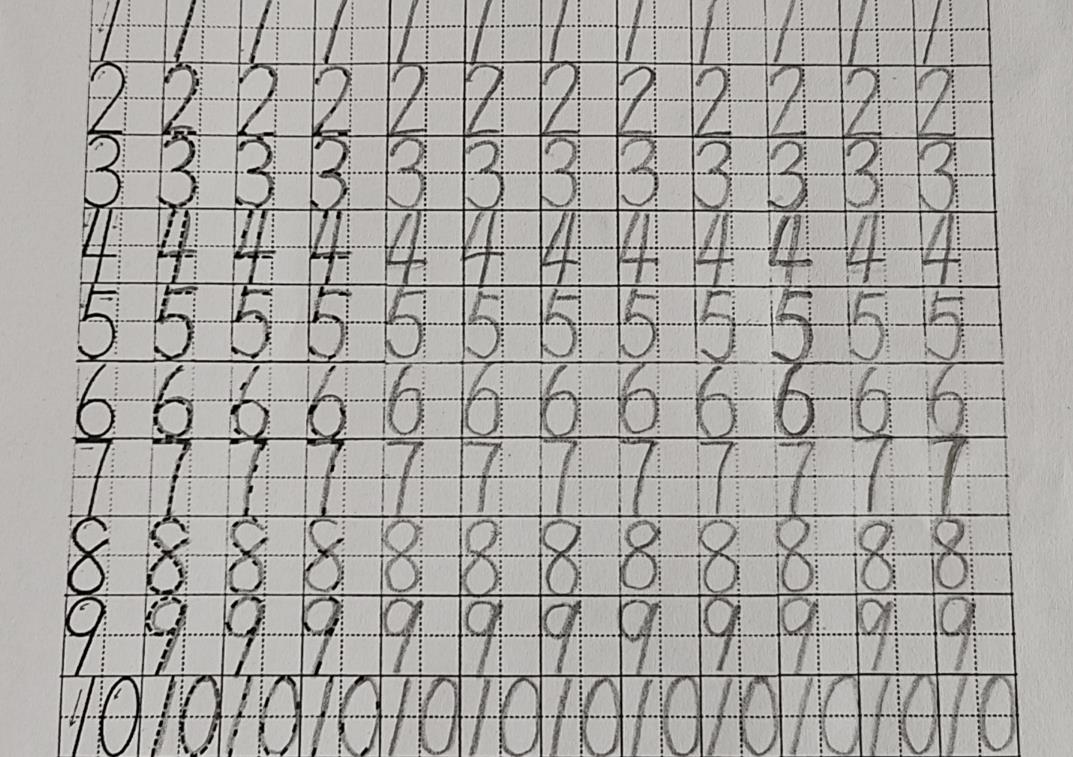 1 1 1 1 1 1 1 1 1 1 1 1
2 2 2 2 2 2 2 2 2 2 2 2
3 3 3 3 3 3 3 3 3 3 3 3
4 4 4 4 4 4 4 4 4 4 4 4
5 5 5 5 5 5 5 5 5 5 5 5
6 6 6 6 6 6 6 6 6 6 6 6
7 7 7 7 7 7 7 7 7 7 7 7
8 8 8 8 8 8 8 8 8 8 8 8
9 9 9 9 9 9 9 9 9 9 9 9
10 10 10 10 10 10 10 10 10 10 10 10